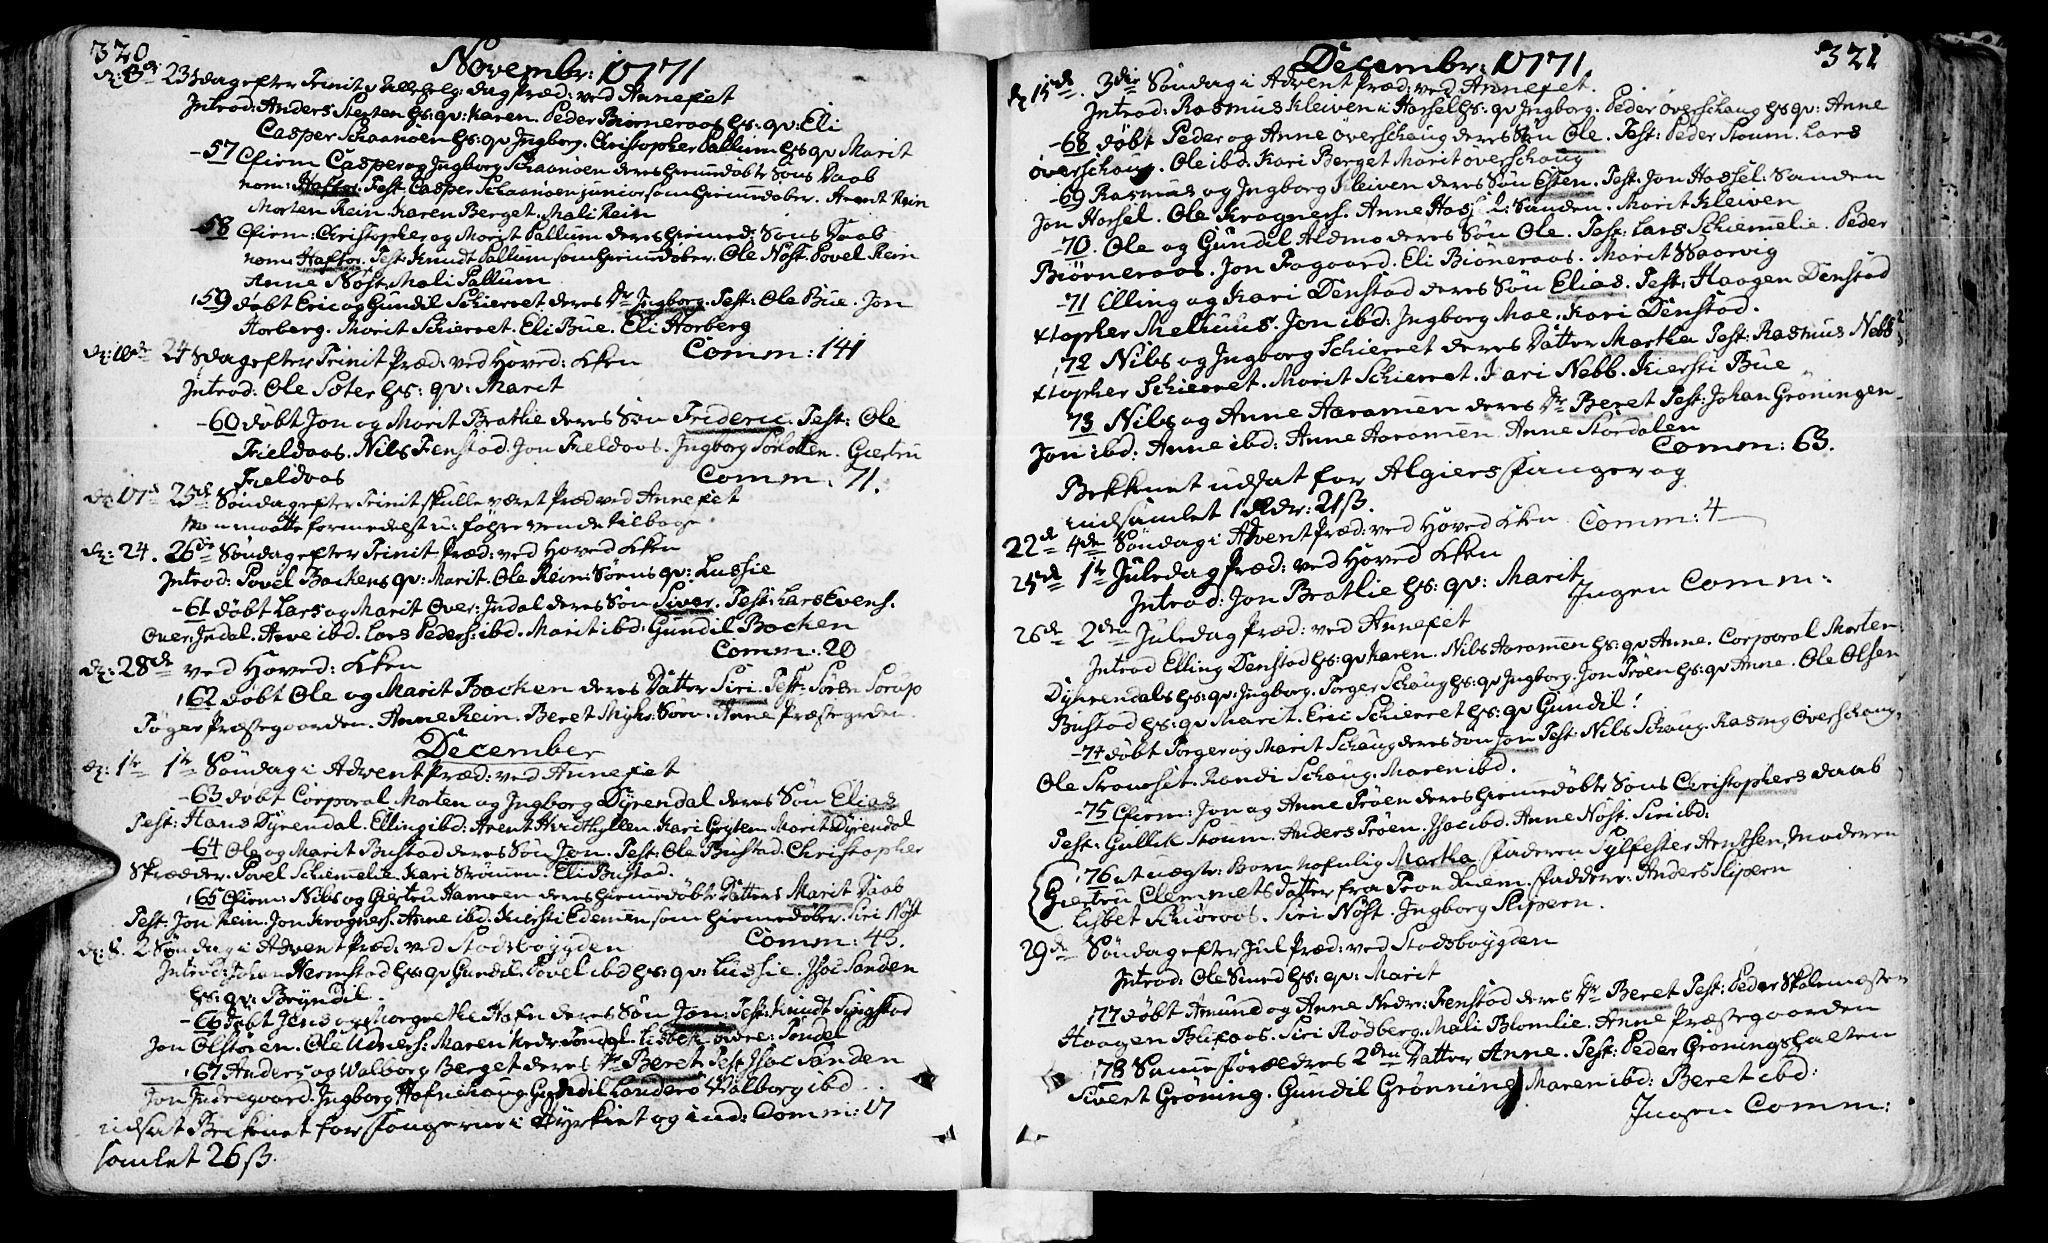 320
Novembr: 1771
dg: 3de 23 Sdag efter Trinit: Allehelg: dag Præd: ved Annexet
Introd: Anders Sterten Hs: qv: Karen. Peder Biørneraas Hs: qv: Eli
Casper Schaanøen Hs: qv Ingborg. Christopher Pallum Hs qv Marit
-57 Cfirm Casper og Ingborg Schaanøen deres hiemmedøbte Søns Daab
nom: Haftor. Test: Casper Schaanøen junior som hiemmedøber. Arent Rein
Morten Rein. Karen Berget. Mali Rein
-58 Cfirm: Christopher og Margt Pallum deres hiemed: Søns Daab
nom: Haftor. Test: Knudt Pallum som hiemmdøber. Ole Nøst. Povel Rein
Anne Nøst. Mali Pallum
159 døbt Eric og Gundil Schierret deres Dr Ingborg. Test: Ole Bue. Jon
Horberg. Marit Schierret. Eli Bue. Eli Horberg
dg: 10de 24 Sdag efter Trinit Præd: ved Hoved: Kken Comm: 141
Introd: Ole Soter Hs: qv: Marit
-60 døbt Jon og Marit Bratlie deres Søn Frideric. Test: Ole
Fieldaas. Nils Fenstad. Jon Fieldaas. Ingborg Solotten. Giertru
Fieldaas Comm: 71.
dg: 17de 25de Søndag efter Trinit skulle været Præd ved Annexet
Men maatte formedelst u: føhre vende tilbage
dg: 24. 26de Søndag efter Trinit Præd: ved Hoved Kken
Introd: Povel Backens qv: Marit. Ole Rein: Sørns qv: Lussie
-61 døbt Lars og Marit Over: Indal deres Søn Siver. Test: Lars Evens.
Over: Indal. Arve ibd. Lars Peders: ibd. Marit ibd: Gundil Backen
Comm: 20
dg: 28de ved Hoved: Kken
162 døbt Ole og Marit Backen deres Datter Siri. Test: Sørn Sorup
Tøger Præstegaarden. Anne Rein. Beret Myhr: Sørn. Anne Præstegrden
December
dg: 1te 1te Søndag i Advent Præd: ved Annexet
-63 døbt Corporal Morten og Ingborg Dyrendal deres Søn Elias
Test: Hans Dyrendal. Elling ibd: Arent Hvidthyllen. Kari Gryten Marit Dyrendal
-64 Ole og Marit Bustad deres Søn Jon. Test: Ole Bustad. Christopher
Skrædder. Povel Schiemelie. Kari Strømen. Eli Bustad.
165 Cfirm: Nils og Giertru Hamoen deres hiemmedøbte Datters Marit Daab
Test: Jon Rein. Jon Krogners. Anne ibd. Kiersti Edemoen som hiemedøber. Siri Nøst
dg: 8. 2 Søndag i Advent Præd: ved Stadsbøygden Comm: 43.
Introd: Johan Hermstad Hs: qv Gundil. Povel ibd Hs: qv: Lussie. Isac Sanden
Hs: qv: Bryndil.
-66 døbt Jens og Margrethe Hafn deres Søn Jon: Test: Knudt Singstad
Jon Olstøren. Ole Udners: Maren Nedr: Tøndel. Lisbeth Øvre: Tøndel
167 Anders og Walborg Berget deres Dr Beret Test: Isac Sanden
Jon Indregaard. Ingborg Hafn: haug Gundil Sanderø Walborg ibd
udsat Beckenet for Fangerne i Tyrkiet og ind: Comm: 17
samlet 26 ß.
Decembr: 1771 321
dg 15de. 3die Søndag i Advent Præd: ved Annexet.
Introd: Rasmus Kleiven i Hassel Hs: qv Ingborg. Peder Øverschaug Hs qv: Anne
-68 døbt Peder og Anne Øverschaug deres Søn Ole. Test: Peder Stoum. Lars
Øverschaug. Ole ibd. Kari Berget Marit Øverschaug
-69 Rasmus og Ingborg Kleiven deres Søn Esten. Test: Jon Hassel: Sanden
Jon Hassel. Ole Krogners. Anne Hassel: Sanden. Marit Kleiven
-70. Ole og Gundil Aldmo deres Søn Ole. Test: Lars Schiemelie. Peder
Biørneraas. Jon Fagaard. Eli Biørneraas. Marit Waarvig
-71 Elling og Kari Denstad deres Søn Elias. Test: Haagen Denstad
Xtopher Melhuus. Jon ibd. Ingborg Moe. Kari Denstad.
172 Nils og Ingborg Schierret deres Datter Martha Test: Rasmus Nebb
Xtopher Schierret. Marit Schierret. Kari Nebb. Kiersti Bue
73 Nils og Anne Aaramen deres Dr Beret Test: Johan Grøningen
Jon ibd. Anne ibd: Anne Aaramen. Anne Stordalen
Comm: 63.
Bekkenet udsat for Algiers Fanger og
indsamlet 1 Rdr: 21 ß.
22de 4de Søndag i Advent Præd: ved Hoved Kken Comm: 4
25de 1te Juledag Præd: ved Hoved Kken
Introd: Jon Bratlie Hs: qv: Marit Ingen Comm:
26de 2den Juledag Præd: ved Annexet
Introd Elling Denstad Hs: qv Karen. Nils Aaramen Hs: qv Anne. Corporal Morten
Dyhrendals Hs: qv: Ingborg. Torger Schaug Hs: qv Ingborg. Jon Trøen Hs: qv Anne. Ole Olsen
Bustad Hs: qv Marit. Eric Schierret Hs: qv Gundil!
-74 døbt Torger og Marit Schaug deres Søn Jon Test: Nils Schaug. Rasmg Øverschaug.
Ole Stamset. Randi Schaug. Maren ibd.
-75 Cfirm: Jon og Anne Trøen deres hiemmedøbte Søns Christophers daab
Test: Gullik Stoum. Anders Trøen. Isac ibd. Anne Nøst. Siri ibd:
176 et uægte: Barn nafnlig Martha Faderen Sylfester Arntsen, Moderen
Giertru Clemmets datter fra Trondhiem. Faddere: Anders Slipern
Lisbet Schiøraas. Siri Nøst. Ingborg Slipern.
29de Søndag efter Jul Præd: ved Stadsbøygden
Introd: Ole Smed Hs: qv: Marit
177 døbt Amund og Anne Nedr: Fenstad deres Dr Beret Test: Peder Skolemester
Haagen Blixaas. Siri Rødberg. Mali Blomlie. Anne Præstegaarden
178 Samme Forældres 2den Datter Anne. Test: Peder Grøningshalten
Sivert Grøning. Gundil Grønning Maren ibd: Beret ibd:
Ingen Comm: